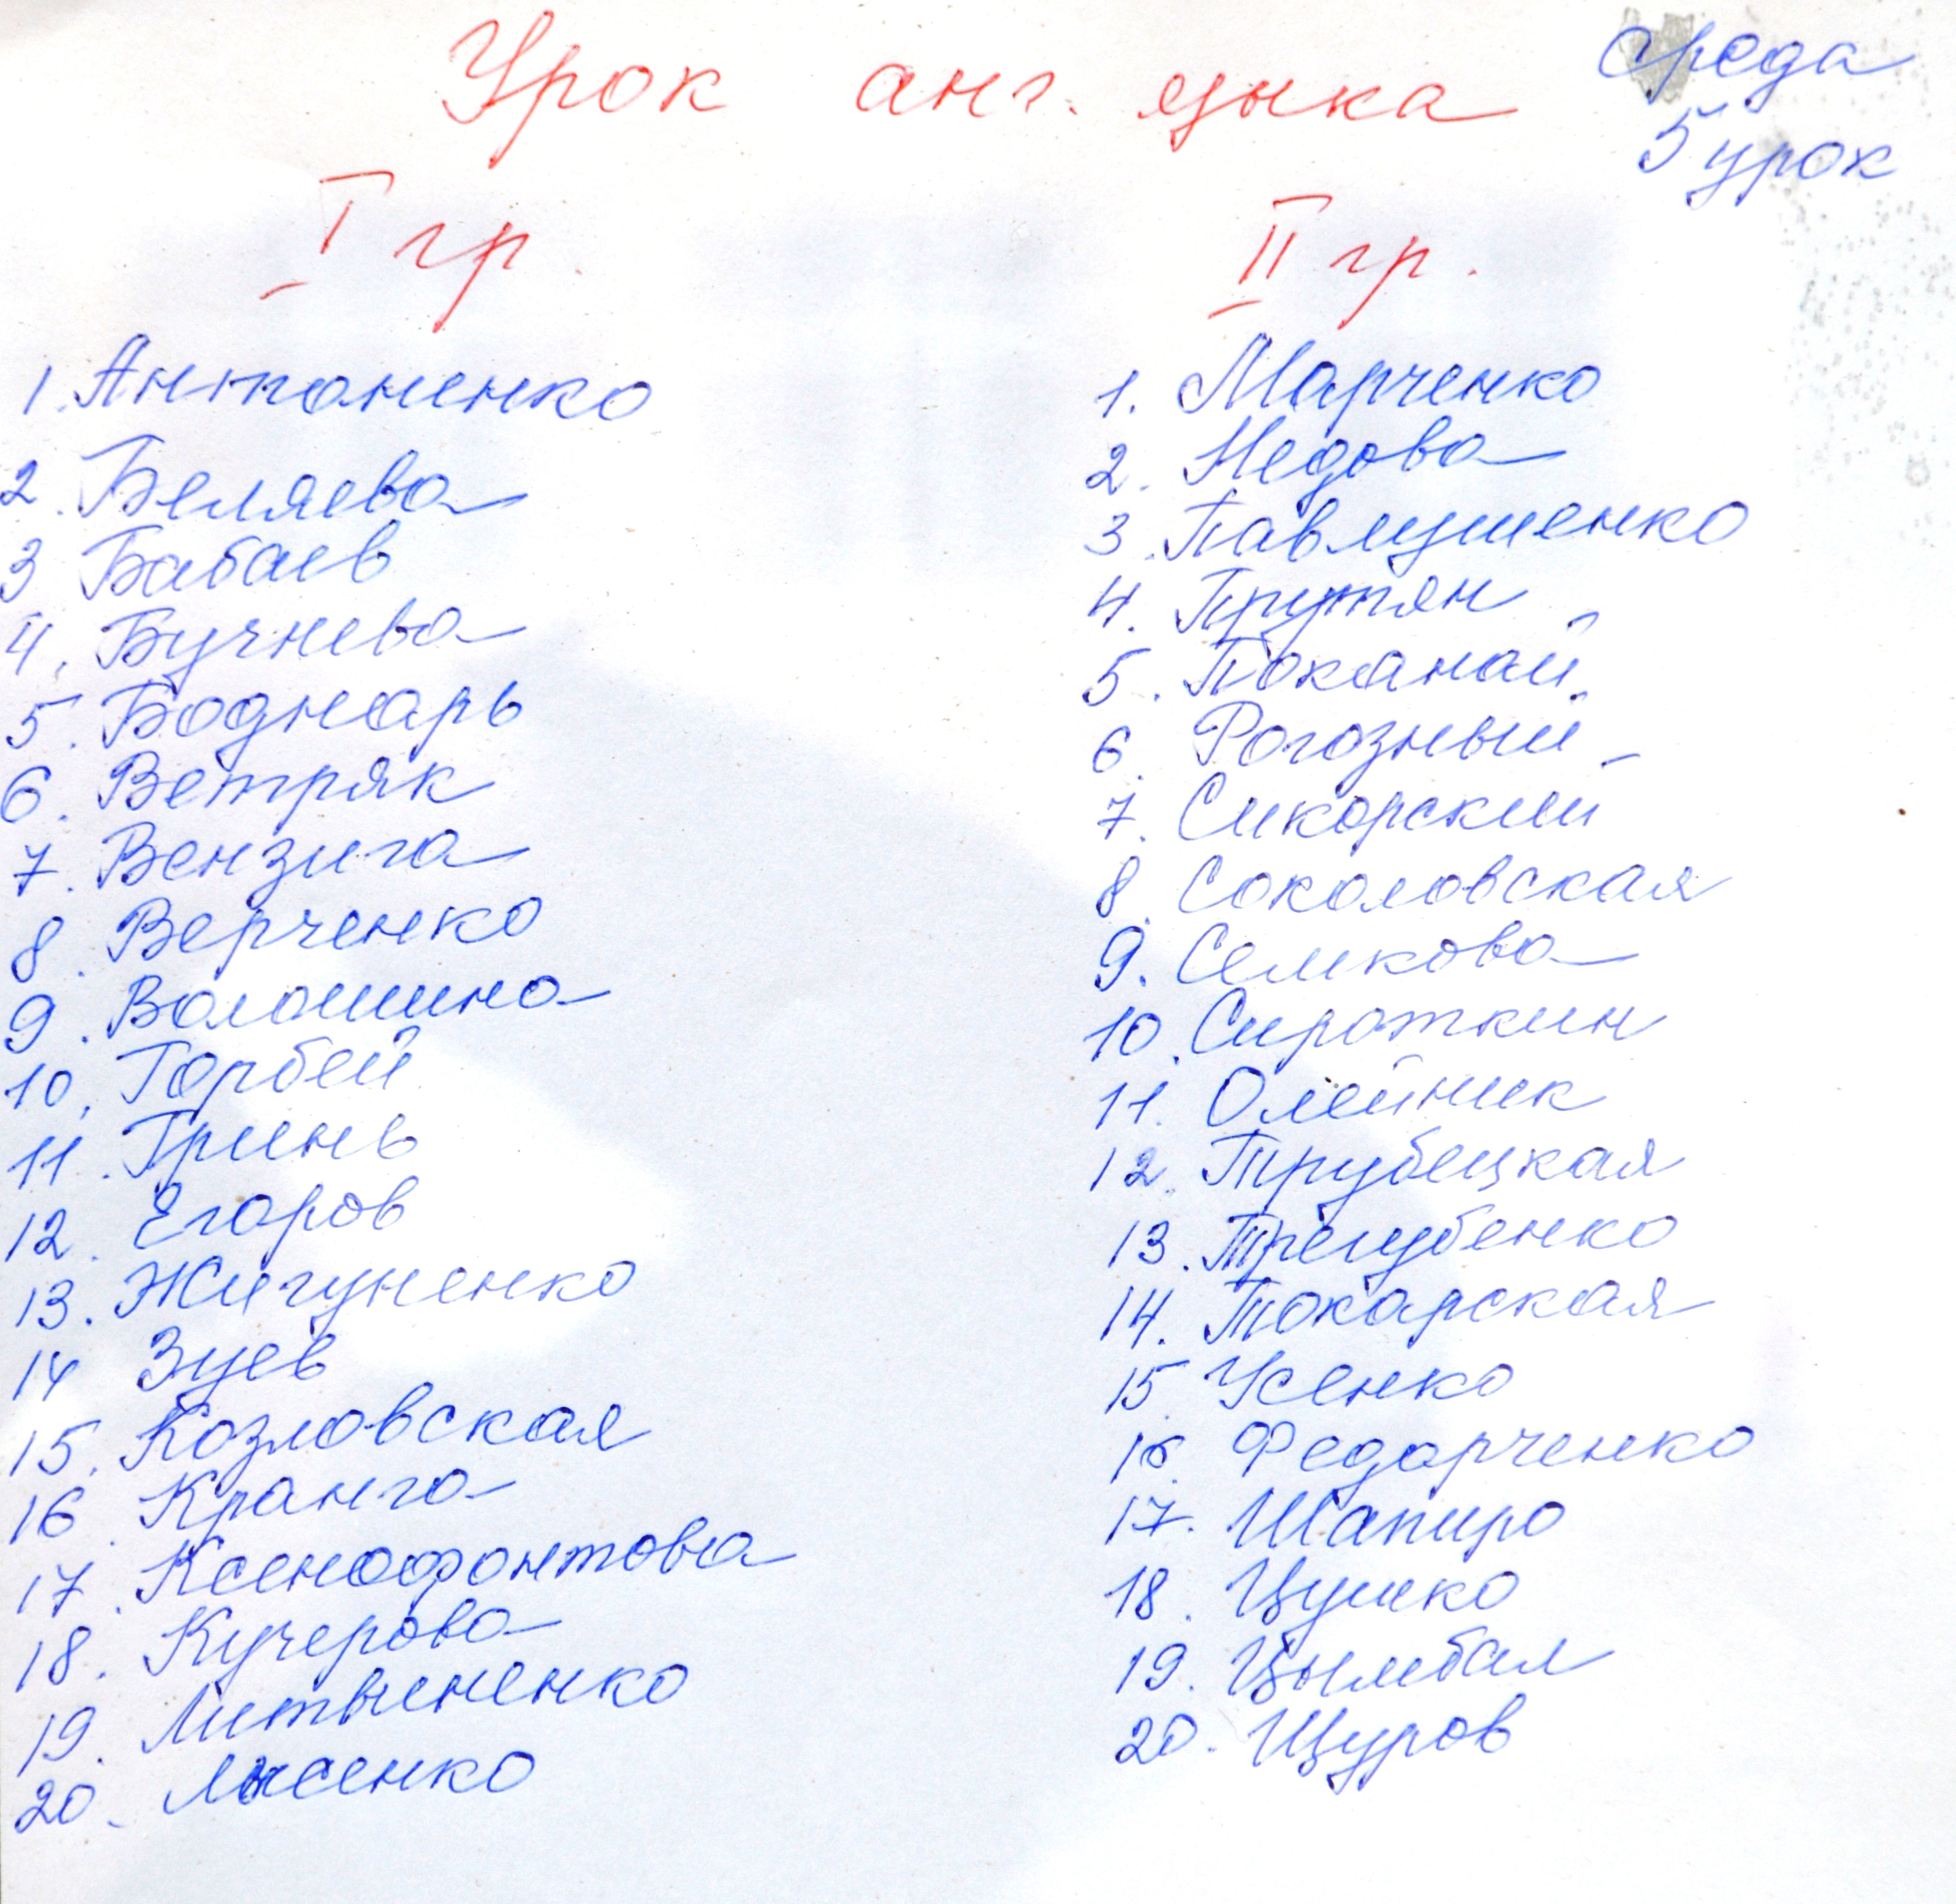 Урок анг. языка
среда
5 урок
I гр.
1. Антоненко
2. Беляева
3 Бабаев
4. Бучнева
5. Боднарь
6. Ветряк
7. Вензига
8. Верченко
9. Волошина
10. Горбей
11. Гринь
12. Егоров
13. Жигуненко
14 Зуев
15. Козловская
16. Кранга
17. Ксенофонтова
18. Кучерова
19. Литвиненко
20. Лысенко
II гр.
1. Марченко
2. Недова
3. Павлушенко
4. Прутян
5. Поканай
6. Рогозный
7. Сикорский
8. Соколовская
9. Семкова
10. Сироткин
11. Олейник
12. Трубецкая
13. Трегубенко
14. Токарская
15. Усенко
16. Федорченко
17. Шапиро
18. Цушко
19. Цымбал
20. Щуров